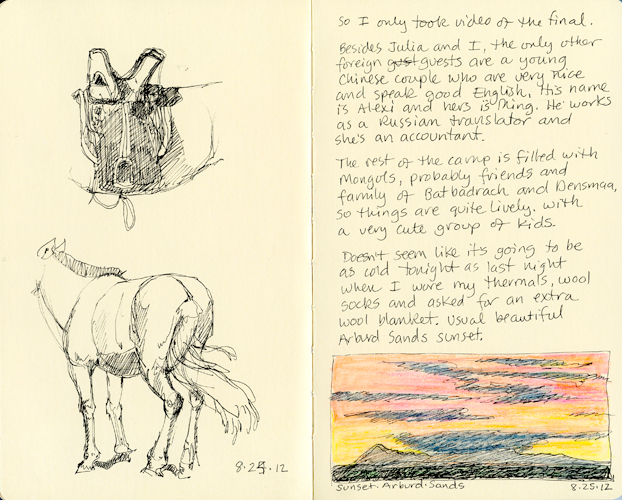 8.25.12
So I only took video of the final.
Besides Julia and I, the only other
foreign gust guests are a young
Chinese couple who are very nice
and speak good English. His name
is Alexi and hers is Ming. He works
as a Russian translator and
she's an accountant.
The rest of the camp is filled with
Mongols, probably friends and
family of Batbadrach and Densmaa,
so things are quite lively. With
a very cute group of kids.
Doesn't seem like it's going to be
as cold tonight as last night
when I wore my thermals, wool
socks and asked for an extra
wool blanket. Usual beautiful
Arburd Sands sunset.
Sunset. Arburd. Sands
8.25.12